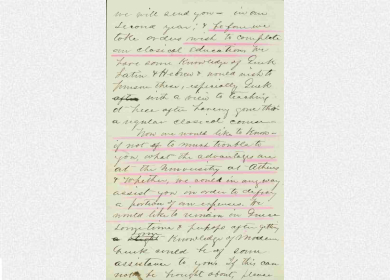 we will send you – in our
second year; & before we
take orders wish to complete
our clasical education. We
have some Knowledge of Greek
Latin & Hebrew & would wish to
pursue these, especially Greek
with a view to teaching
it here after having gone thro
a regular classical course
Now we would like to Know –
if not of to much trouble to
you what the advantages are
at the University at Athens
& Whether we could in any way
assist you in order to defray
a portion of our expenses. We
would like to remain in Greece
sometime & perhaps after getting
a some Knowledge of Modern
Greek could be of some
assistance to you. if this can
not be brought about, please